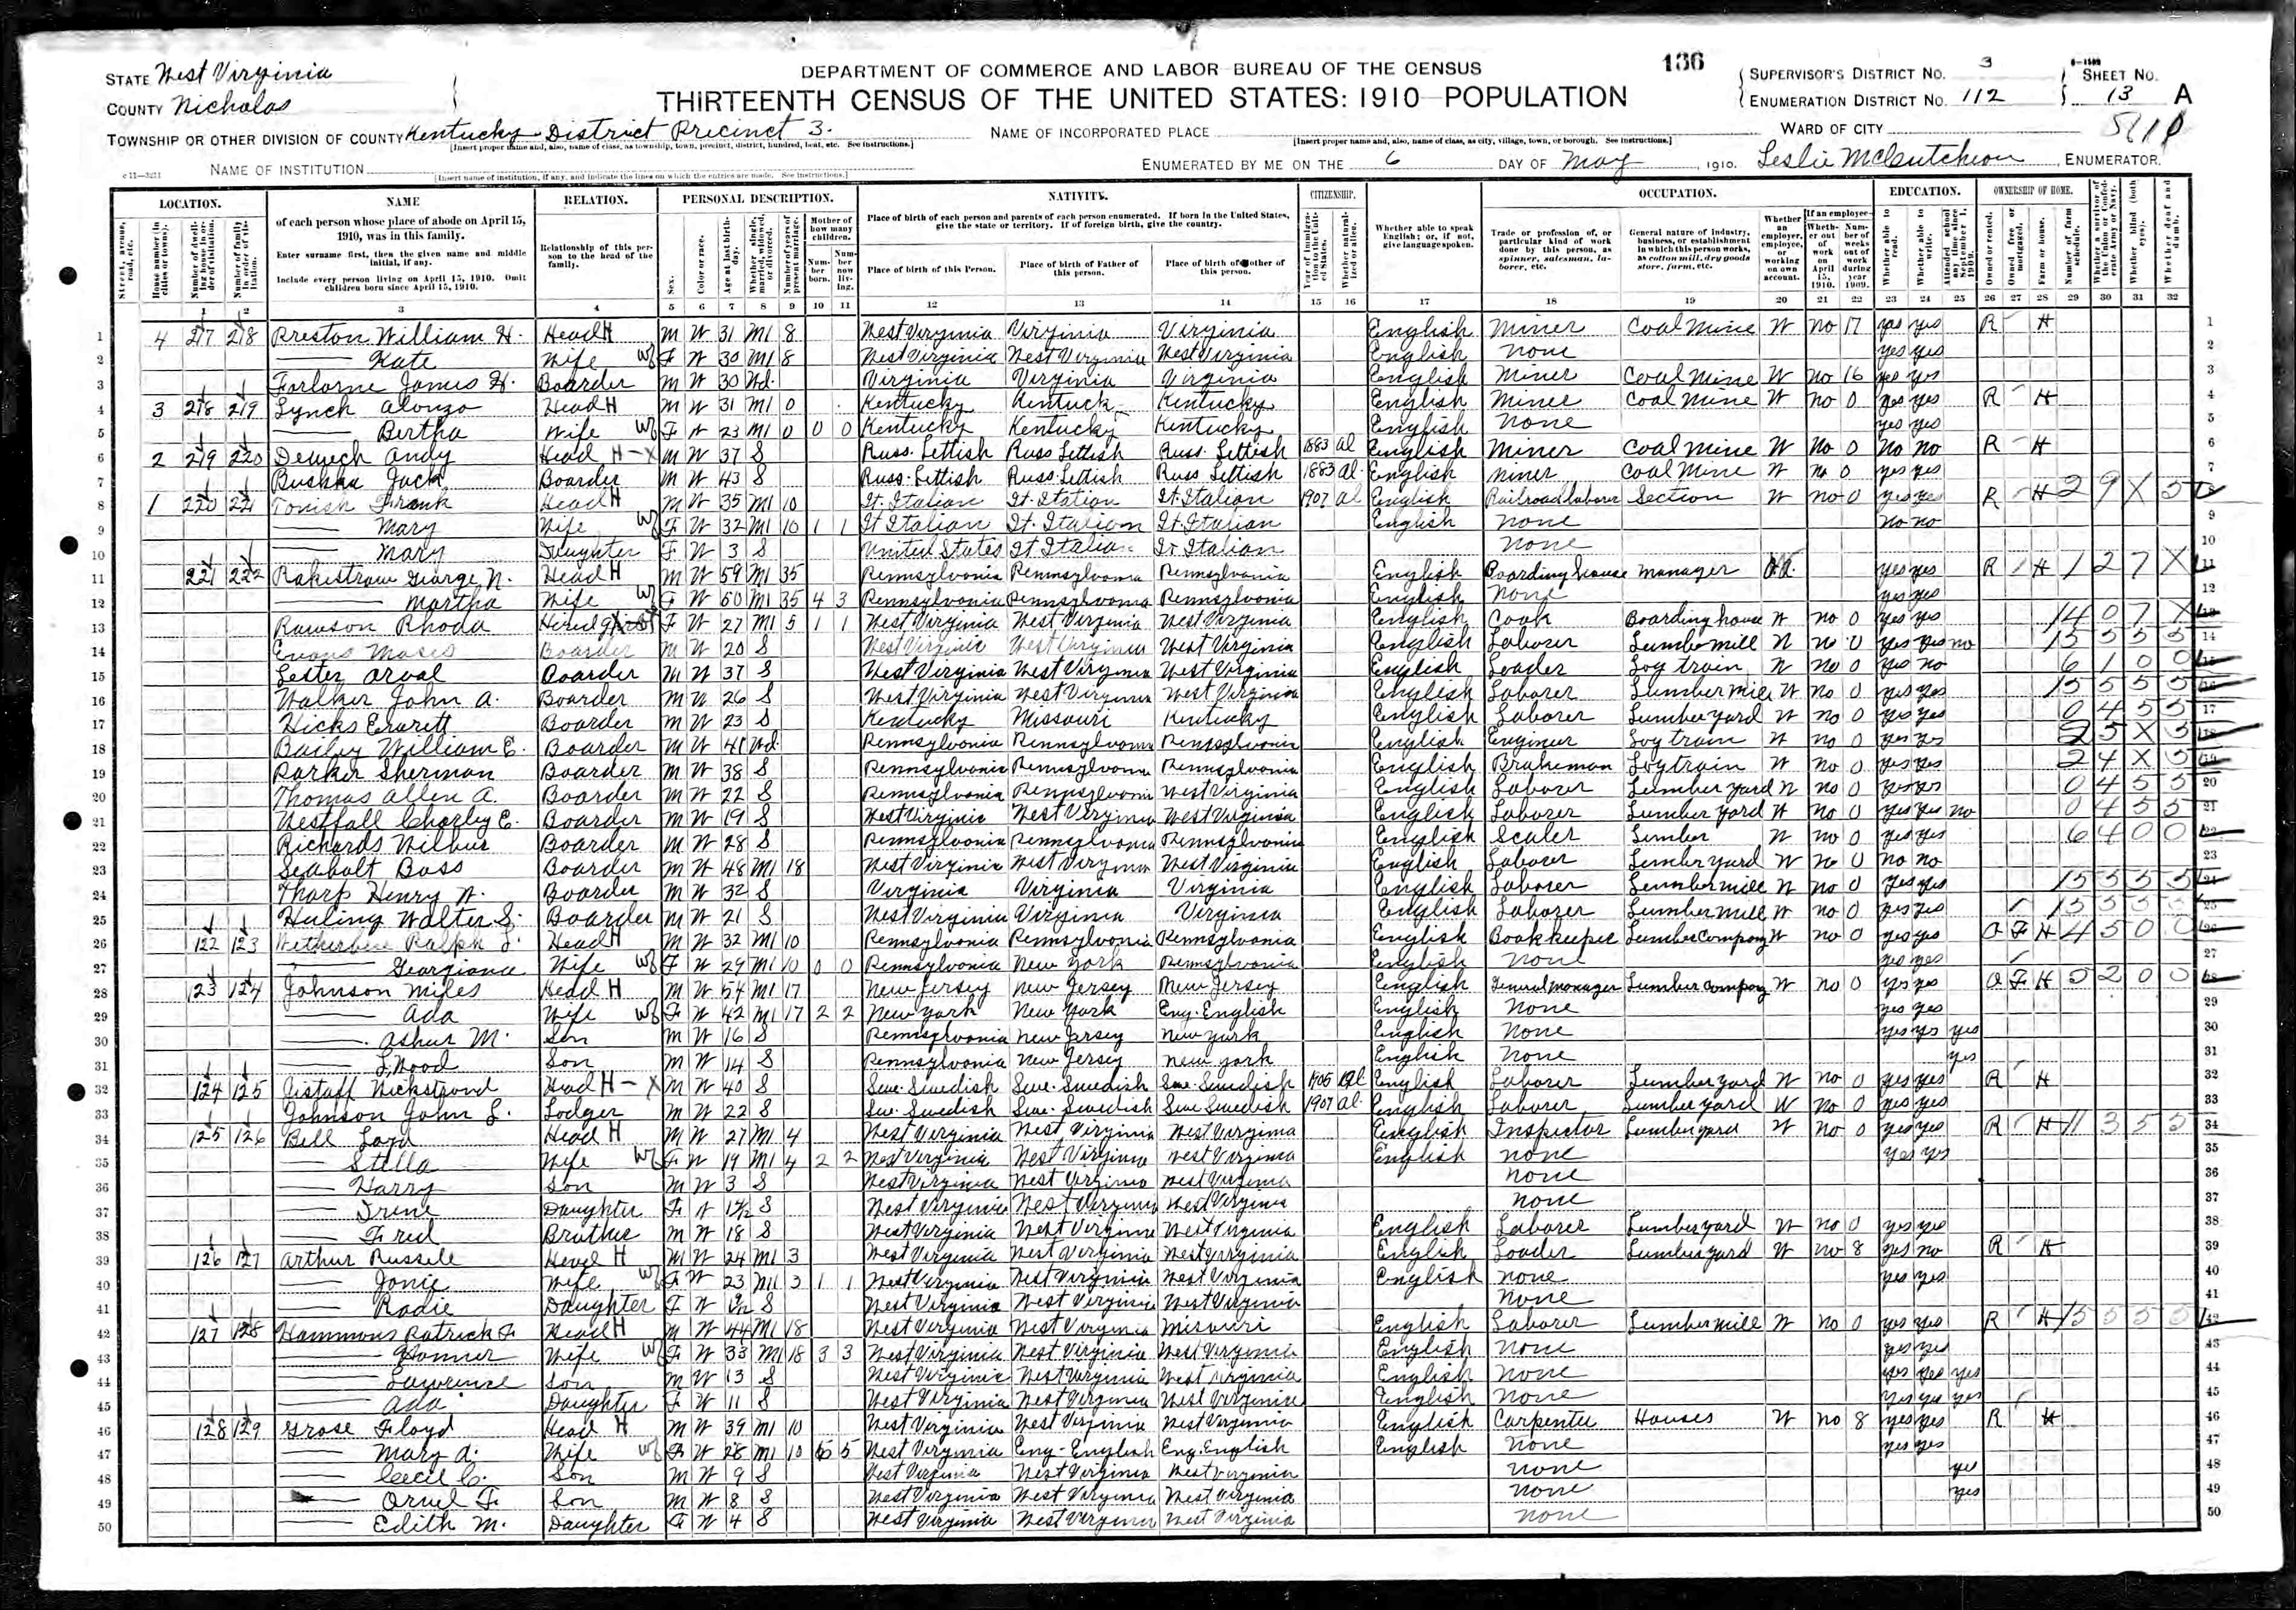 136
STATE West Virginia
COUNTY Nicholas
TOWNSHIP OR OTHER DIVISION OF COUNTY Kentucky District Precinct 3.
[Insert proper name and, also, name of class, as township, town, precinct, district, hundred, beat, etc. See instructions.]
NAME OF INSTITUTION
[Insert name of institution, if any, and indicate the lines on which the entries are made. See instructions.]
DEPARTMENT OF COMMERCE AND LABOR BUREAU OF THE CENSUS
THIRTEENTH CENSUS OF THE UNITED STATES: 1910 POPULATION
NAME OF INCORPORATED PLACE
[Insert proper name and, also, name of class, as city, village, town, or borough. See instructions.]
ENUMERATED BY ME ON THE 6 DAY OF May, 1910. Leslie McCutcheon, ENUMERATOR.
SUPERVISOR'S DISTRICT No. 3
ENUMERATION DISTRICT No. 112
SHEET No. 13 A
WARD OF CITY
LOCATION. NAME RELATION. PERSONAL DESCRIPTION. NATIVITY. CITIZENSHIP. OCCUPATION. EDUCATION. OWNERSHIP OF HOME.
of each person whose place of abode on April 15, 1910, was in this family.
Enter surname first, then the given name and middle initial, if any.
Include every person living on April 15, 1910. Omit children born since April 15, 1910.
Relationship of this person to the head of the family.
Place of birth of each person and parents of each person enumerated. If born in the United States, give the state or territory. If of foreign birth, give the country.
Place of birth of this Person. Place of birth of Father of this person. Place of birth of Mother of this person.
Whether able to speak English; or, if not, give language spoken.
Trade or profession of, or particular kind of work done by this person, as spinner, salesman, laborer, etc.
General nature of industry, business, or establishment in which this person works, as cotton mill, dry goods store, farm, etc.
1 2 3 4 5 6 7 8 9 10 11 12 13 14 15 16 17 18 19 20 21 22 23 24 25 26 27 28 29 30 31 32
1 4 217 218 Preston William H. Head H M W 31 M1 8 West Virginia Virginia Virginia English Miner Coal Mine W no 17 yes yes R H
2 Kate Wife F W 30 M1 8 West Virginia West Virginia West Virginia English None yes yes
3 Forlorne James H. Boarder M W 30 Wd. Virginia Virginia Virginia English Miner Coal Mine W no 16 yes yes
4 3 218 219 Lynch Alonzo Head H M W 31 M1 0 Kentucky Kentuck Kentucky English Miner Coal Mine W no 0 yes yes R H
5 Bertha Wife F W 23 M1 0 0 0 Kentucky Kentucky Kentucky English None yes yes
6 2 219 220 Andy Head H-X M W 37 S Russ. Lettish Russ Lettish Russ. Lettish 1883 al English Miner Coal Mine W No 0 No No R H
7 Jack Boarder M W 43 S Russ. Lettish Russ. Lettish Russ Lettish 1883 al English Miner Coal Mine W no 0 yes yes
8 1 220 221 Tonish Frank Head H M W 35 M1 10 It. Italian It. Italian It. Italian 1907 al English Railroad laborer Section W no 0 yes yes R H 2 9 X 5
9 Mary Wife F W 32 M1 10 1 1 It Italian It. Italian It. Italian English None No no
10 Mary Daughter F W 3 S United States It Italian It Italian None
11 221 222 Rakestraw George N. Head H M W 59 M1 35 Pennsylvania Pennsylvania Pennsylvania English Boarding house manager yes yes R H 1 2 7 X
12 Martha Wife F W 50 M1 35 4 3 Pennsylvania Pennsylvania Pennsylvania English None yes yes
13 Rawson Rhoda F W 27 M1 5 1 1 West Virginia West Virginia West Virginia English Cook Boarding house W no 0 yes yes 1 4 0 7 X
14 Evans Moses Boarder M W 20 S West Virginia West Virginia West Virginia English Laborer Lumber mill W no 0 yes yes no 1 5 5 5 5
15 Lester Orval Boarder M W 37 S West Virginia West Virginia West Virginia English Loader Log train W no 0 yes no 6 1 0 0
16 Walker John A. Boarder M W 26 S West Virginia West Virginia West Virginia English Laborer Lumber mill W no 0 yes yes 1 5 5 5 5
17 Hicks Everett Boarder M W 23 S Kentucky Missouri Kentucky English Laborer Lumber yard W no 0 yes yes 0 4 5 5
18 Bailey William E. Boarder M W 41 Wd. Pennsylvania Pennsylvania Pennsylvania English Engineer Log train W no 0 yes yes 2 5 X 5
19 Parker Sherman Boarder M W 38 S Pennsylvania Pennsylvania Pennsylvania English Brakeman Log train W no 0 yes yes 2 4 X 5
20 Thomas Allen A. Boarder M W 22 S Pennsylvania Pennsylvania West Virginia English Laborer Lumber yard W no 0 yes yes 0 4 5 5
21 Westfall Charley E. Boarder M W 19 S West Virginia West Virginia West Virginia English Laborer Lumber yard W no 0 yes yes no 0 4 5 5
22 Richards Wilbur Boarder M W 28 S Pennsylvania Pennsylvania Pennsylvania English Scaler Lumber W no 0 yes yes 6 4 0 0
23 Seabolt Bass Boarder M W 48 M1 18 West Virginia West Virginia West Virginia English Laborer Lumber yard W no 0 no no
24 Tharp Henry W. Boarder M W 32 S Virginia Virginia Virginia English Laborer Lumber mill W no 0 yes yes 1 5 5 5 5
25 Huling Walter S. Boarder M W 21 S West Virginia Virginia Virginia English Laborer Lumber mill W no 0 yes yes 1 5 5 5 5
26 122 123 Wetherbee Ralph L. Head H M W 32 M1 10 Pennsylvania Pennsylvania Pennsylvania English Bookkeeper Lumber Company W no 0 yes yes O F H 4 5 0 0
27 Georgiana Wife F W 29 M1 10 0 0 Pennsylvania New York Pennsylvania English None yes yes
28 123 124 Johnson Miles Head H M W 54 M1 17 New Jersey New Jersey New Jersey English General manager Lumber Company W no 0 yes yes O F H 5 2 0 0
29 Ada Wife F W 42 M1 17 2 2 New York New York Eng. English English None yes yes
30 Ashur M. Son M W 16 S Pennsylvania New Jersey New York English None yes yes yes
31 L. Wood Son M W 14 S Pennsylvania New Jersey New York English None yes
32 124 125 Nickstrond Head H-X M W 40 S Swe. Swedish Swe. Swedish Swe. Swedish 1905 al English Laborer Lumber yard W no 0 yes yes R H
33 Johnson John L. Lodger M W 22 S Swe. Swedish Swe. Swedish Swe Swedish 1907 al. English Laborer Lumber yard W no 0 yes yes
34 125 126 Bell Loyd Head H M W 27 M1 4 West Virginia West Virginia West Virginia English Inspector Lumber yard W no 0 yes yes R H 1 1 3 5 5
35 Stella Wife F W 19 M1 4 2 2 West Virginia West Virginia West Virginia English none yes yes
36 Harry Son M W 3 S West Virginia West Virginia West Virginia none
37 Irene Daughter F W S West Virginia West Virginia West Virginia none
38 Fred Brother M W 18 S West Virginia West Virginia West Virginia English Laborer Lumber yard W no 0 yes yes
39 126 127 Arthur Russele Head H M W 24 M1 3 West Virginia West Virginia West Virginia English Loader Lumber yard W no 8 yes no R H
40 Jonie Wife F W 23 M1 3 1 1 West Virginia West Virginia West Virginia English none yes yes
41 Radie Daughter F W S West Virginia West Virginia West Virginia none
42 127 128 Hammons Patrick F. Head H M W 44 M1 18 West Virginia West Virginia Missouri English Laborer Lumber mill W no 0 yes yes R H 1 5 5 5 5
43 Wife F W 33 M1 18 3 3 West Virginia West Virginia West Virginia English None yes yes
44 Lawrence Son M W 13 S West Virginia West Virginia West Virginia English None yes yes yes
45 Ada Daughter F W 11 S West Virginia West Virginia West Virginia English None yes yes yes
46 128 129 Grose Floyd Head H M W 39 M1 10 West Virginia West Virginia West Virginia English Carpenter Houses W no 8 yes yes R H
47 Mary A. Wife F W 28 M1 10 5 West Virginia Eng-English Eng. English English None yes yes
48 Cecil C. Son M W 9 S West Virginia West Virginia West Virginia none yes
49 Orvel F. Son M W 8 S West Virginia West Virginia West Virginia none yes
50 Edith M. Daughter F W 4 S West Virginia West Virginia West Virginia none